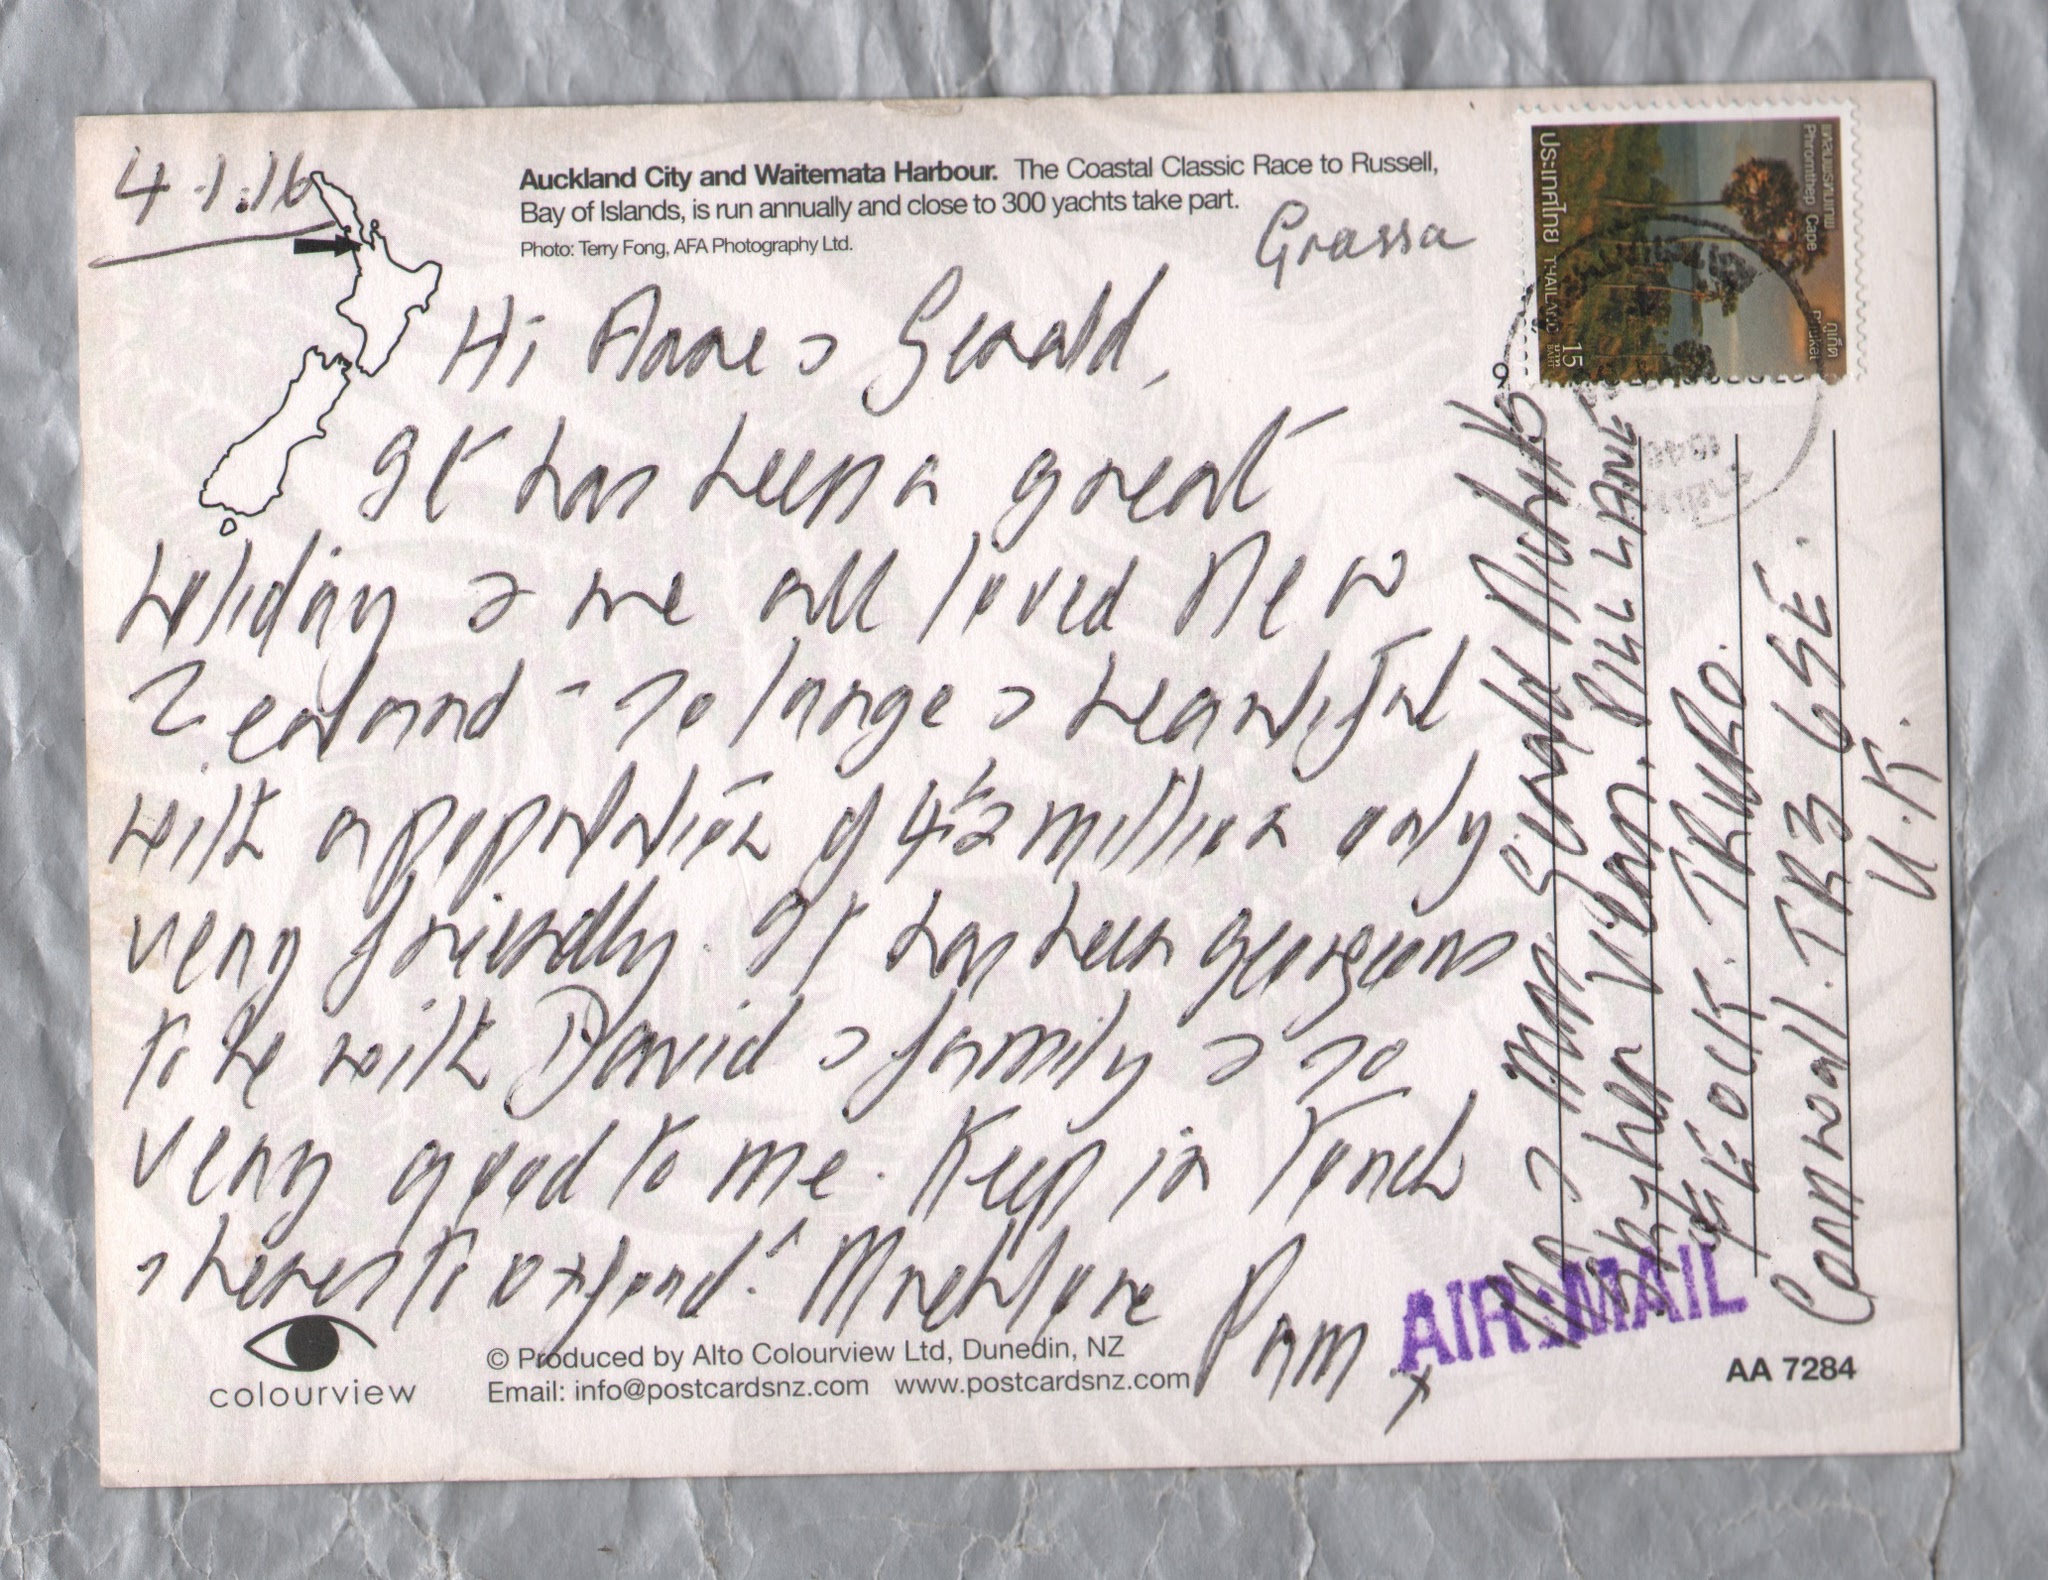 4.1.16
Auckland City and Waitemata Harbour. The Coastal Classic Race to Russell,
Bay of Islands, is run annually and close to 300 yachts take part.
Photo: Terry Fong, AFA Photography Ltd.
Grassa
Hi Anne & Gerald,
It has been a great
holiday & we all loved New
Zealand - so large & beautiful
with a population of 4½ million only
very friendly. It has been gorgeous
to be with David & family & so
very good to me. Keep in touch
& heres to Oxford! Much love
Pam x
colourview
© Produced by Alto Colourview Ltd, Dunedin, NZ
Email: info@postcardsnz.com www.postcardsnz.com
AIR:MAIL
AA 7284
แหลมพรหมเทพ ภูเก็ต
Phromthep Cape Phuket
ประเทศไทย THAILAND 15
บาท
BAHT
Mr & Mrs Gerald
Vean.
FEOCK. TRURO.
Cornwall. TR3 6SE.
U.K.